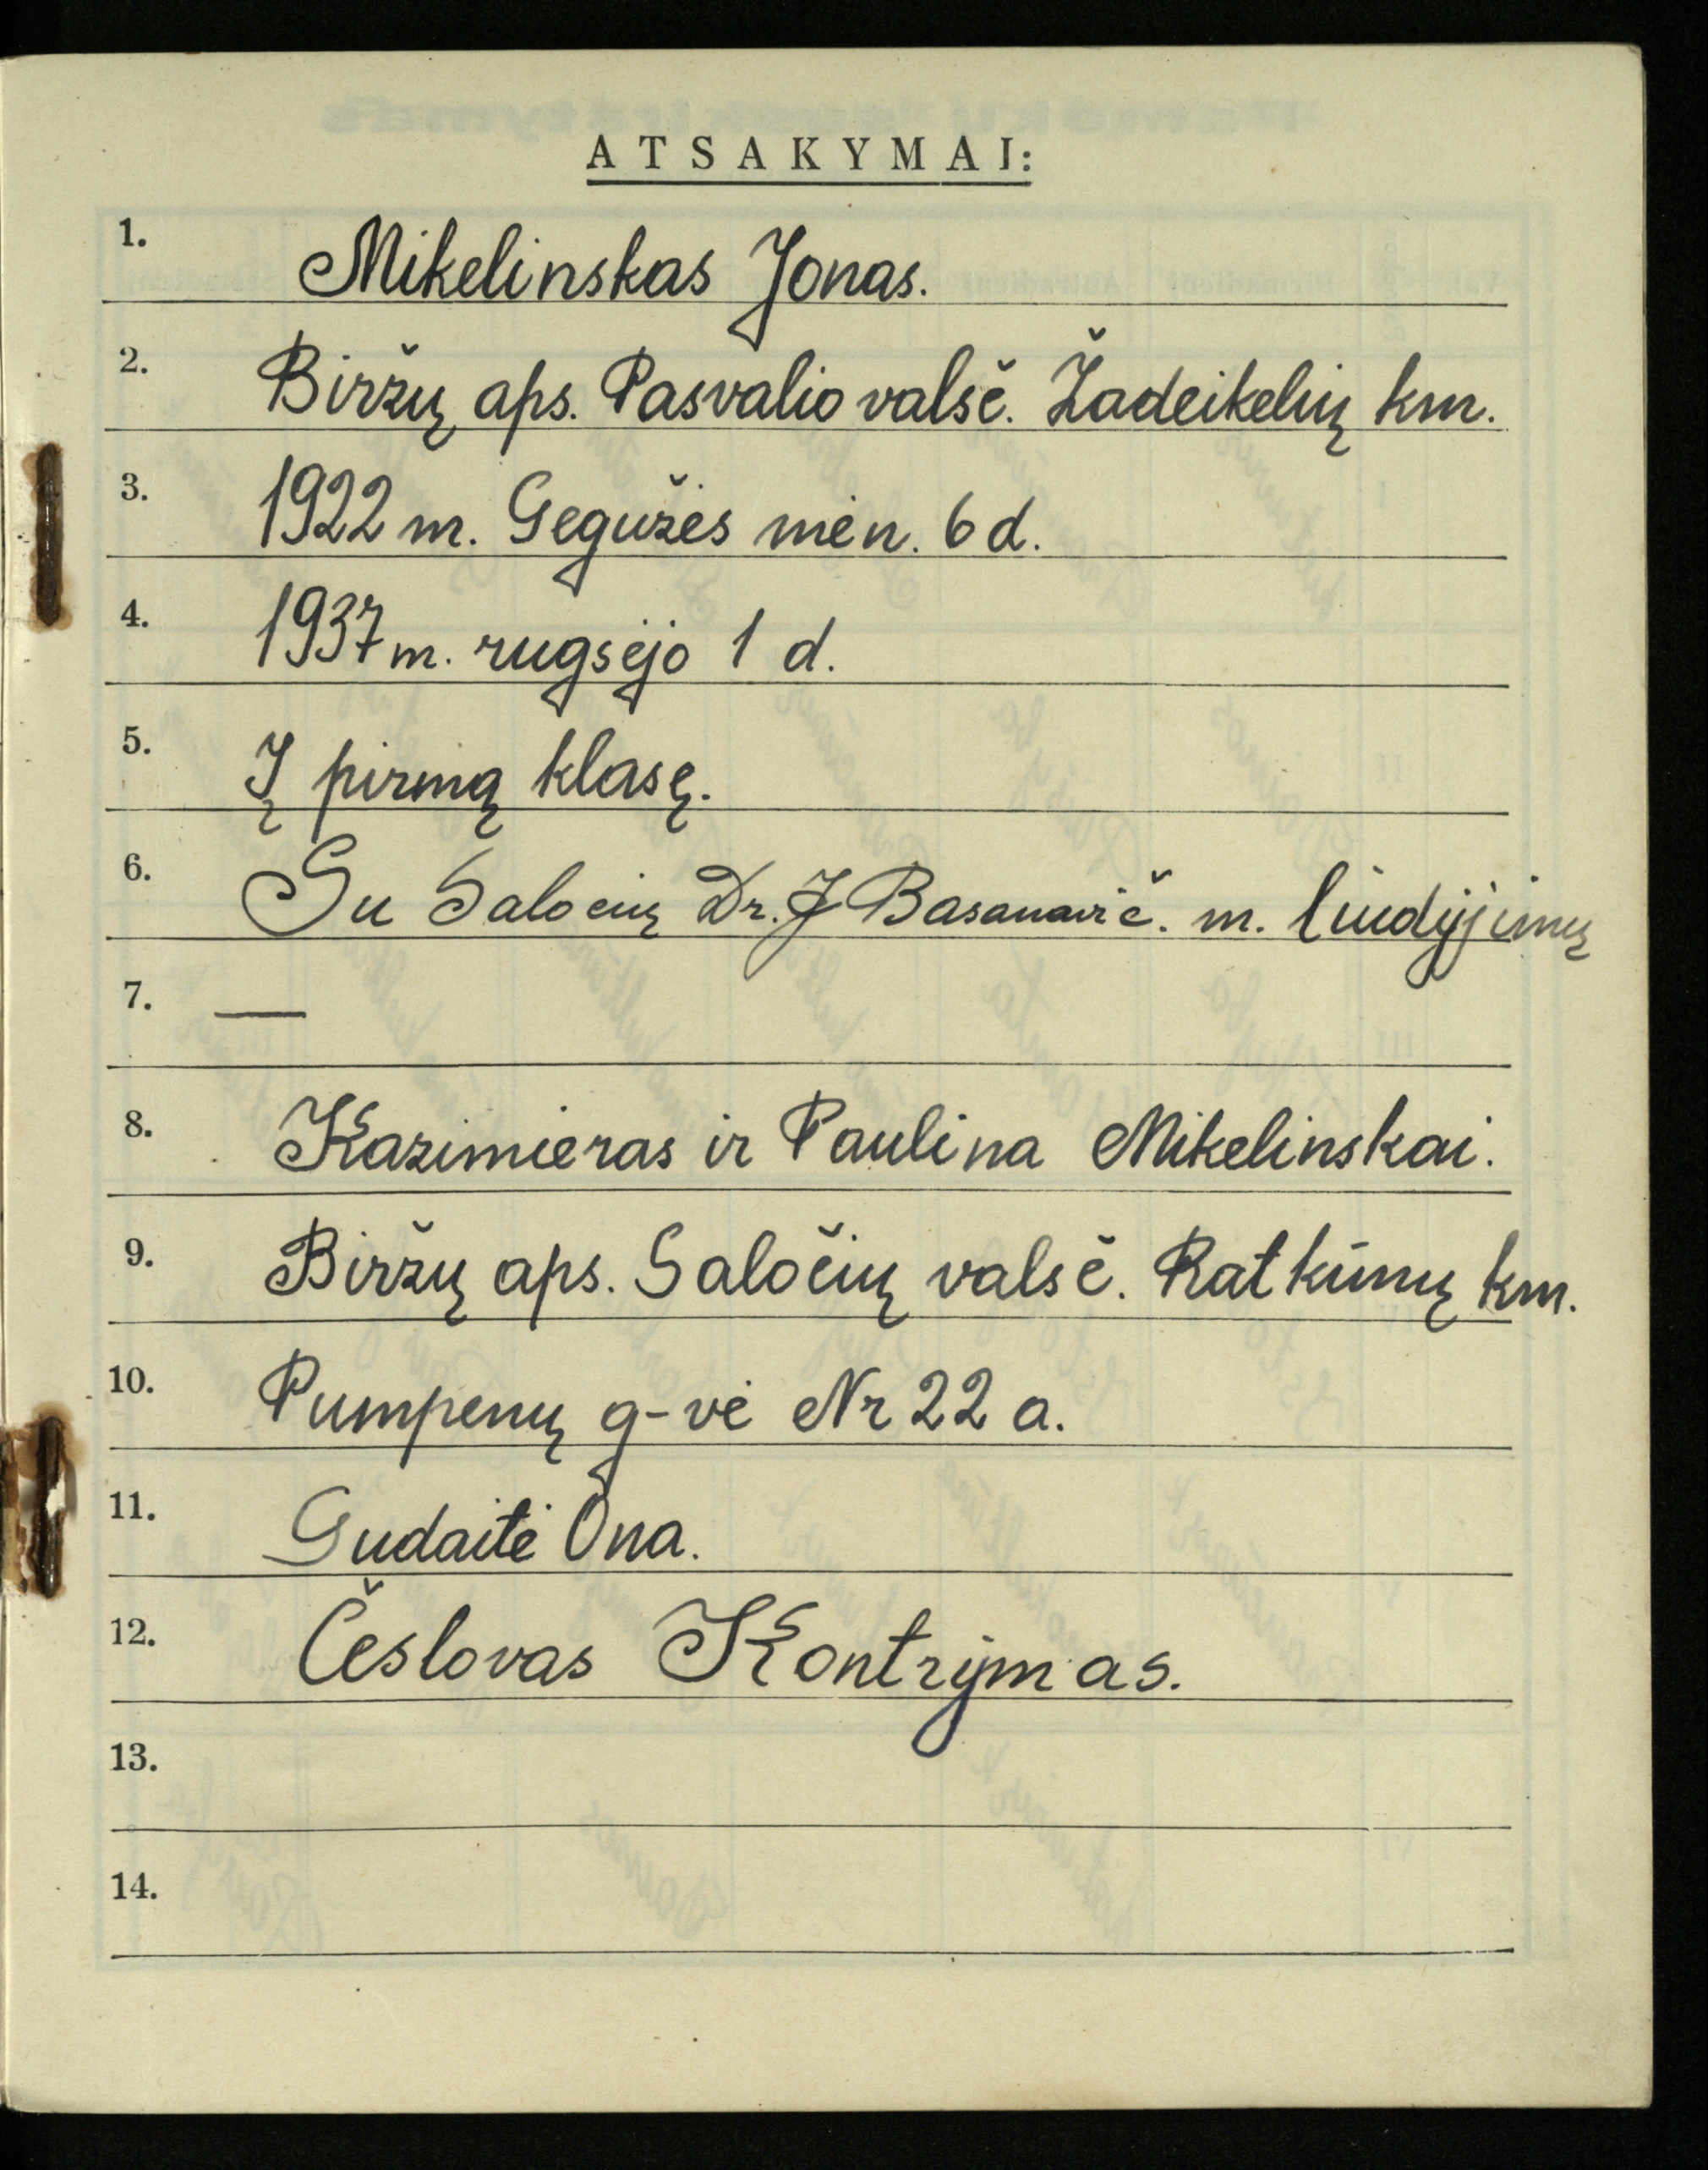 ATSAKYMAI:
1. Mikelinskas Jonas.
2. Biržų aps. Pasvalio valsč. Žadeikelių km.
3. 1922 m. Gegužės mėn. 6 d.
4. 1937 m. rugsėjo 1 d.
5. Į pirmą klasę.
6. Su Saločių Dr. J Basanavič. m. liudyjimų
7. —
8. Kazimieras ir Paulina Mikelinskai.
9. Biržų aps. Saločių valsč. Ratkūnų km.
10. Pumpėnų g-vė Nr 22 a.
11. Gudaitė Ona.
12. Česlovas Kontrymas.
13.
14.